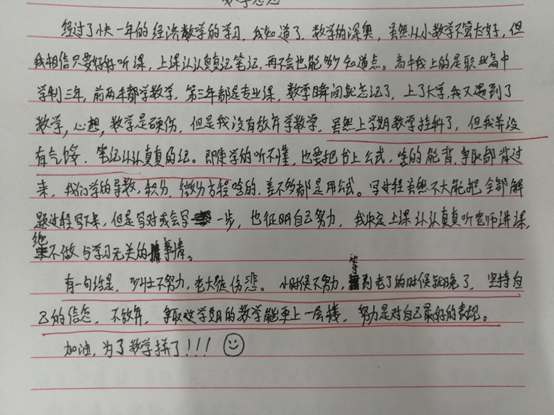 数学感想
经过了快一年的经济数学的学习，我知道了，数学的深奥，虽然从小数学不算太好，但
我相信只要好好听课，上课认认真真记笔记，再不会也能够知道点。高中我上的是职业高中
学制三年，前两年都学数学，第三年都是专业课，数学瞬间就忘记了，上了大学，我又遇到了
数学，心想，数学是硬伤，但是我没有放弃学数学，虽然上学期数学挂科了，但我并没
有气馁，笔记认认真真的记。即使学的听不懂，也要把书上公式，啥的能背，争取都背过
来，我们学的导数，积分，微分方程啥的，差不多都是用公式。写过程虽然不大能把全部解
题过程写下来，但是写对或会写一步，也证明自己努力，我决定上课认认真真听老师讲课，
绝不做与学习无关的事情。
有一句话是，少壮不努力，老大徒伤悲。小时候不努力，等到老了的时候就晚了，坚持自
己的信念，不放弃，争取这学期的数学能更上一层楼，努力是对自己最好的表现。
加油，为了数学拼了！！！